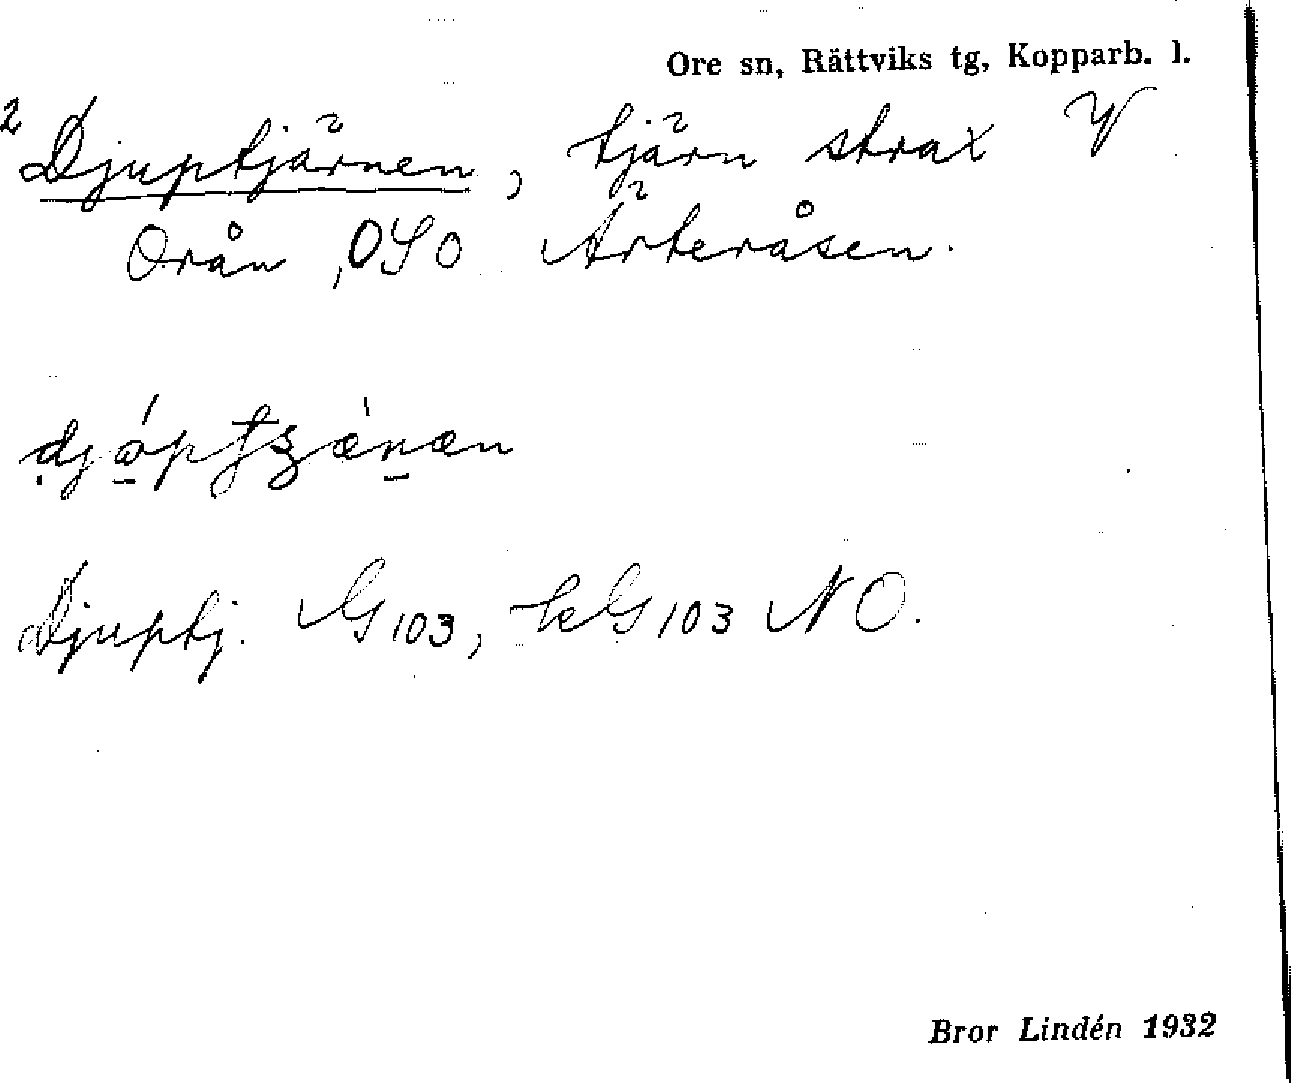 Ore sn, Rättviks tg, Kopparb. l.
2 Djuptjärnen, tjärn strax V
Orån, OSO Ärteråsen.
Djuptj. G 103, kG 103 NO.
Bror Lindén 1932